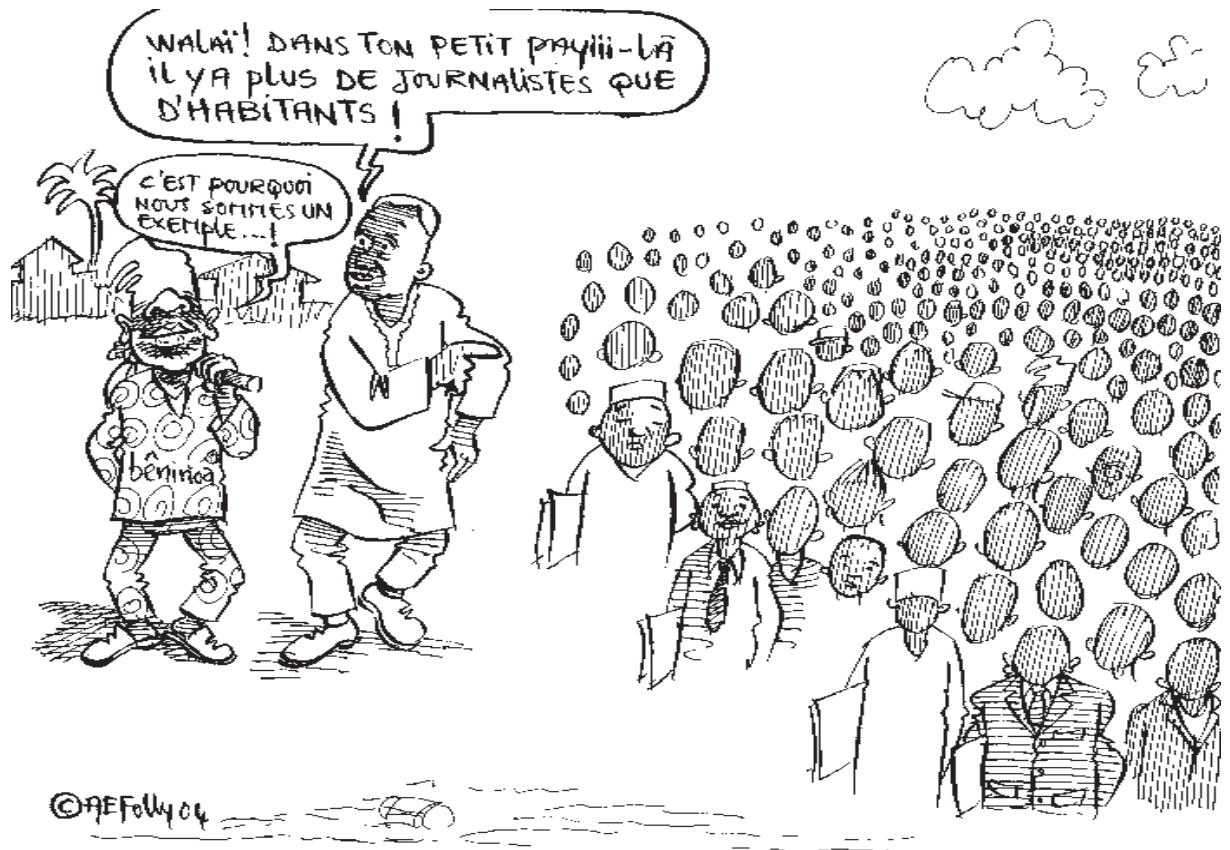 WALAÏ! DANS TON PETIT PAYIII-LÀ
IL Y A PLUS DE JOURNALISTES QUE
D'HABITANTS !
C'EST POURQUOI
NOUS SOMMES UN
EXEMPLE...!
bêninoa
©AEFolly 04